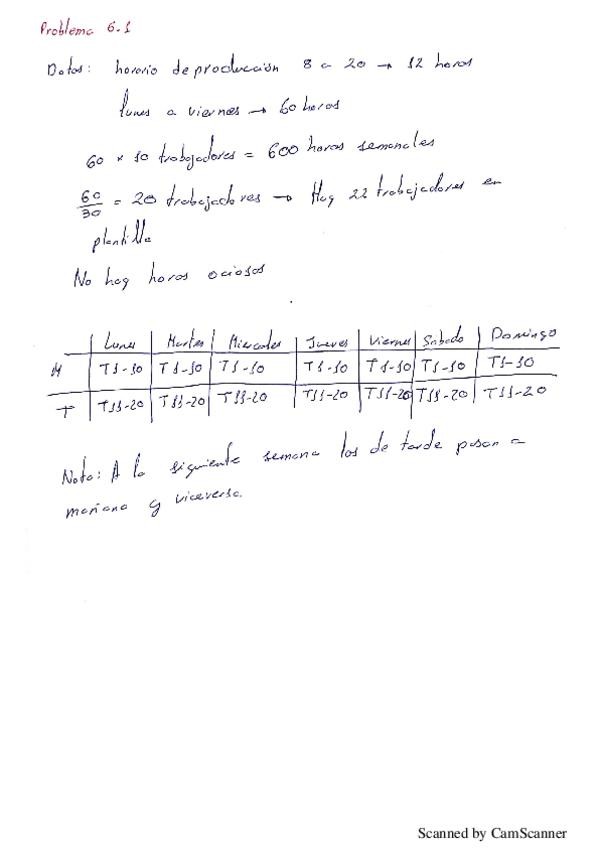 Problema 6.1
Datos: horario de producción 8 a 20 → 12 horas
lunes a viernes → 60 horas
60 * 10 trabajadores = 600 horas semanales
60/30 = 20 trabajadores → Hay 22 trabajadores en
plantilla
No hay horas ociosas
Lunes Martes Miercoles Jueves Viernes Sabado Domingo
M T1-10 T1-10 T1-10 T1-10 T1-10 T1-10 T1-10
T T11-20 T11-20 T11-20 T11-20 T11-20 T11-20 T11-20
Nota: A la siguiente semana los de tarde pasan a
mañana y viceversa.
Scanned by CamScanner